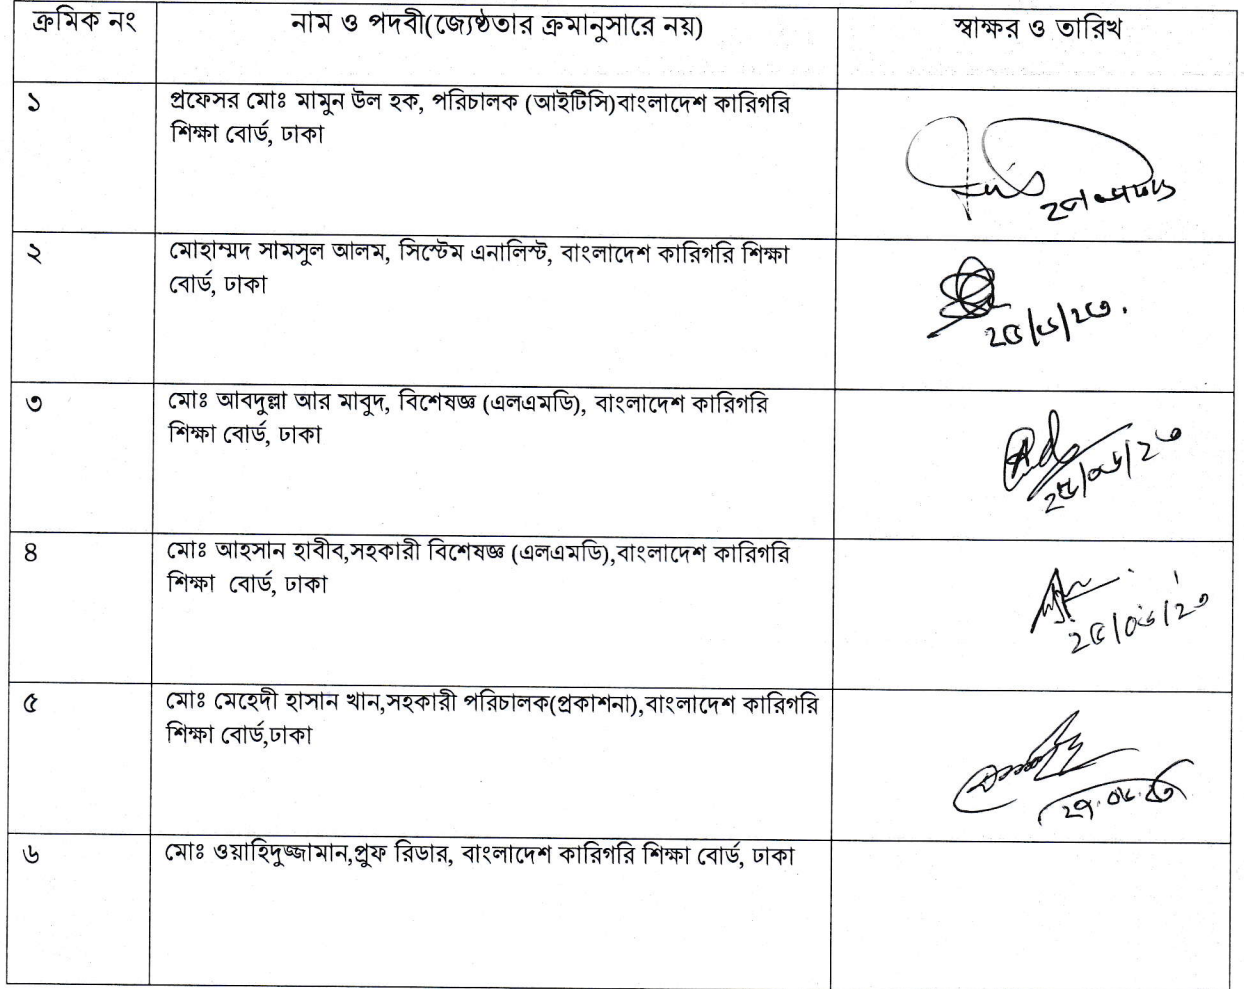 ক্রমিক নং নাম ও পদবী(জ্যেষ্ঠতার ক্রমানুসারে নয়) স্বাক্ষর ও তারিখ
১ প্রফেসর মোঃ মামুন উল হক, পরিচালক (আইটিসি)বাংলাদেশ কারিগরি
শিক্ষা বোর্ড, ঢাকা
২ মোহাম্মদ সামসুল আলম, সিস্টেম এনালিস্ট, বাংলাদেশ কারিগরি শিক্ষা
বোর্ড, ঢাকা
২৫/৬/২৩.
৩ মোঃ আবদুল্লা আর মাবুদ, বিশেষজ্ঞ (এলএমডি), বাংলাদেশ কারিগরি
শিক্ষা বোর্ড, ঢাকা
২৫/০৬/২৩
৪ মোঃ আহসান হাবীব,সহকারী বিশেষজ্ঞ (এলএমডি),বাংলাদেশ কারিগরি
শিক্ষা বোর্ড, ঢাকা
২৫/০৬/২৩
৫ মোঃ মেহেদী হাসান খান,সহকারী পরিচালক(প্রকাশনা),বাংলাদেশ কারিগরি
শিক্ষা বোর্ড,ঢাকা
২৭.০৬.২৩
৬ মোঃ ওয়াহিদুজ্জামান,প্রুফ রিডার, বাংলাদেশ কারিগরি শিক্ষা বোর্ড, ঢাকা